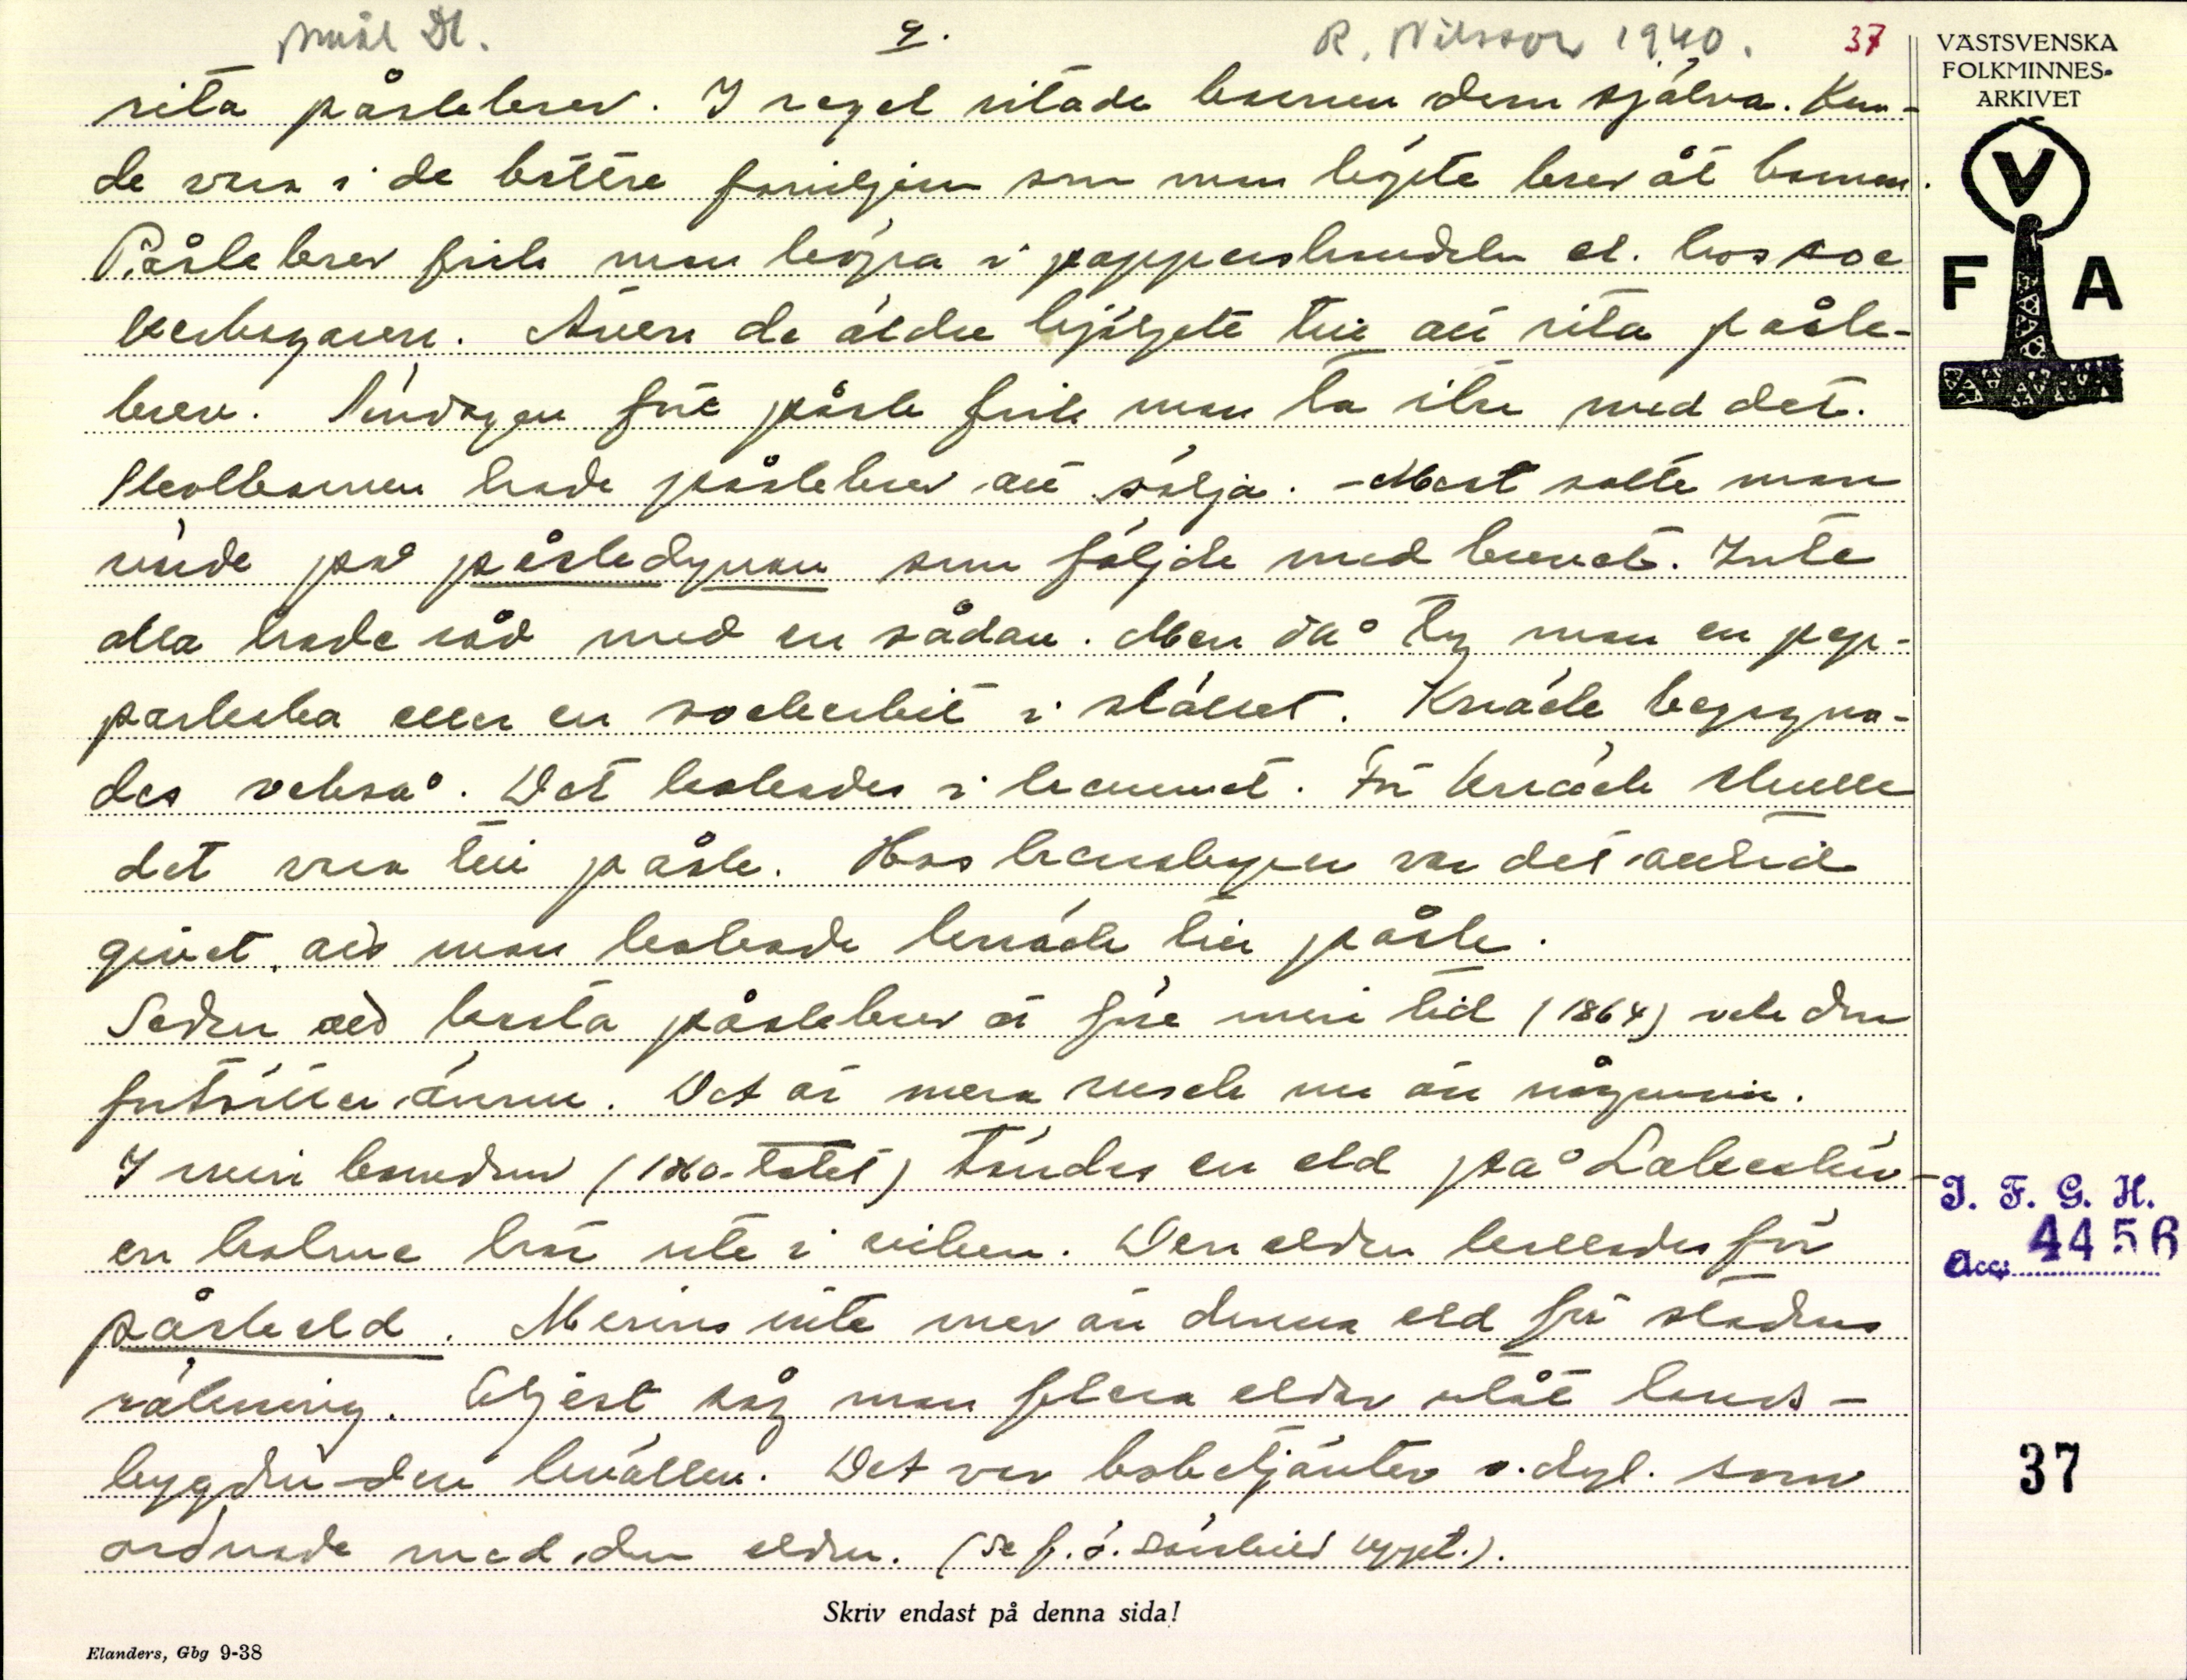 Åmål Dl. 9. R. Nilsson 1940. 37
VÄSTSVENSKA
FOLKMINNES-
ARKIVET
V
F A
rita påskbrev. I regel ritade barnen dem själva. Kun-
de vara i de bättre familjerna som man köpte brev åt barnen.
Påskbrev fick man köpa i pappershandeln el. hos soc
kerbagaren. Även de äldre hjälpte till att rita påsk-
brev. Söndagen före påsk fick man ta itu med det.
Skolbarnen hade påskbrev att sälja. - Mest satte man
värde på påskdynan som följde med brevet. Inte
alla hade råd med en sådan. Men då tog man en pep-
parkaka eller en sockerbit i stället. Knäck begagna-
des också. Det kokades i hemmet. För knäck skulle
det vara till påsk. Hos handlaren var det alltid
givet, att man kokade knäck till påsk.
Seden att kasta påskbrev är före min tid (1864) och den
fortsätter ännu. Det är mera rusch nu än någonsin.
I min barndom (1860-talet) tändes en eld på
en holme här ute i viken. Den elden kallades för
påskeld. Minns inte mer än denna eld för stadens
räkning. Eljest såg man flera eldar utåt lands-
bygden den kvällen. Det var bokbetjänter o. dyl. som
ordnade med den elden. (Se f. ö. särskild uppt.).
I. F. G. H.
Acc. 4456
37
Skriv endast på denna sida!
Elanders, Gbg 9-38